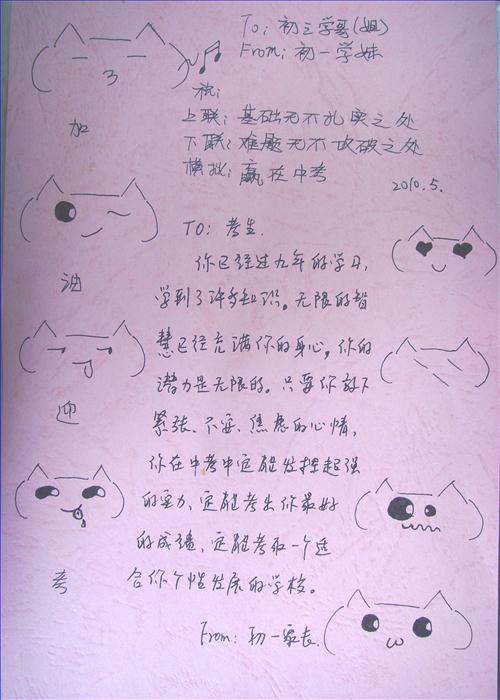 To: 初三学哥(姐)
From: 初一学妹
祝:
上联: 基础无不扎实之处
下联: 难题无不攻破之处
横批: 赢在中考
2010.5.
TO: 考生.
你已经过九年的学习,
学到了许多知识。无限的智
慧已经充满你的身心。你的
潜力是无限的。只要你放下
紧张、不安、焦虑的心情,
你在中考中定能发挥超强
的实力、定能考出你最好
的成绩、定能考取一个适
合你个性发展的学校。
From: 初一家长.
加
油
迎
考